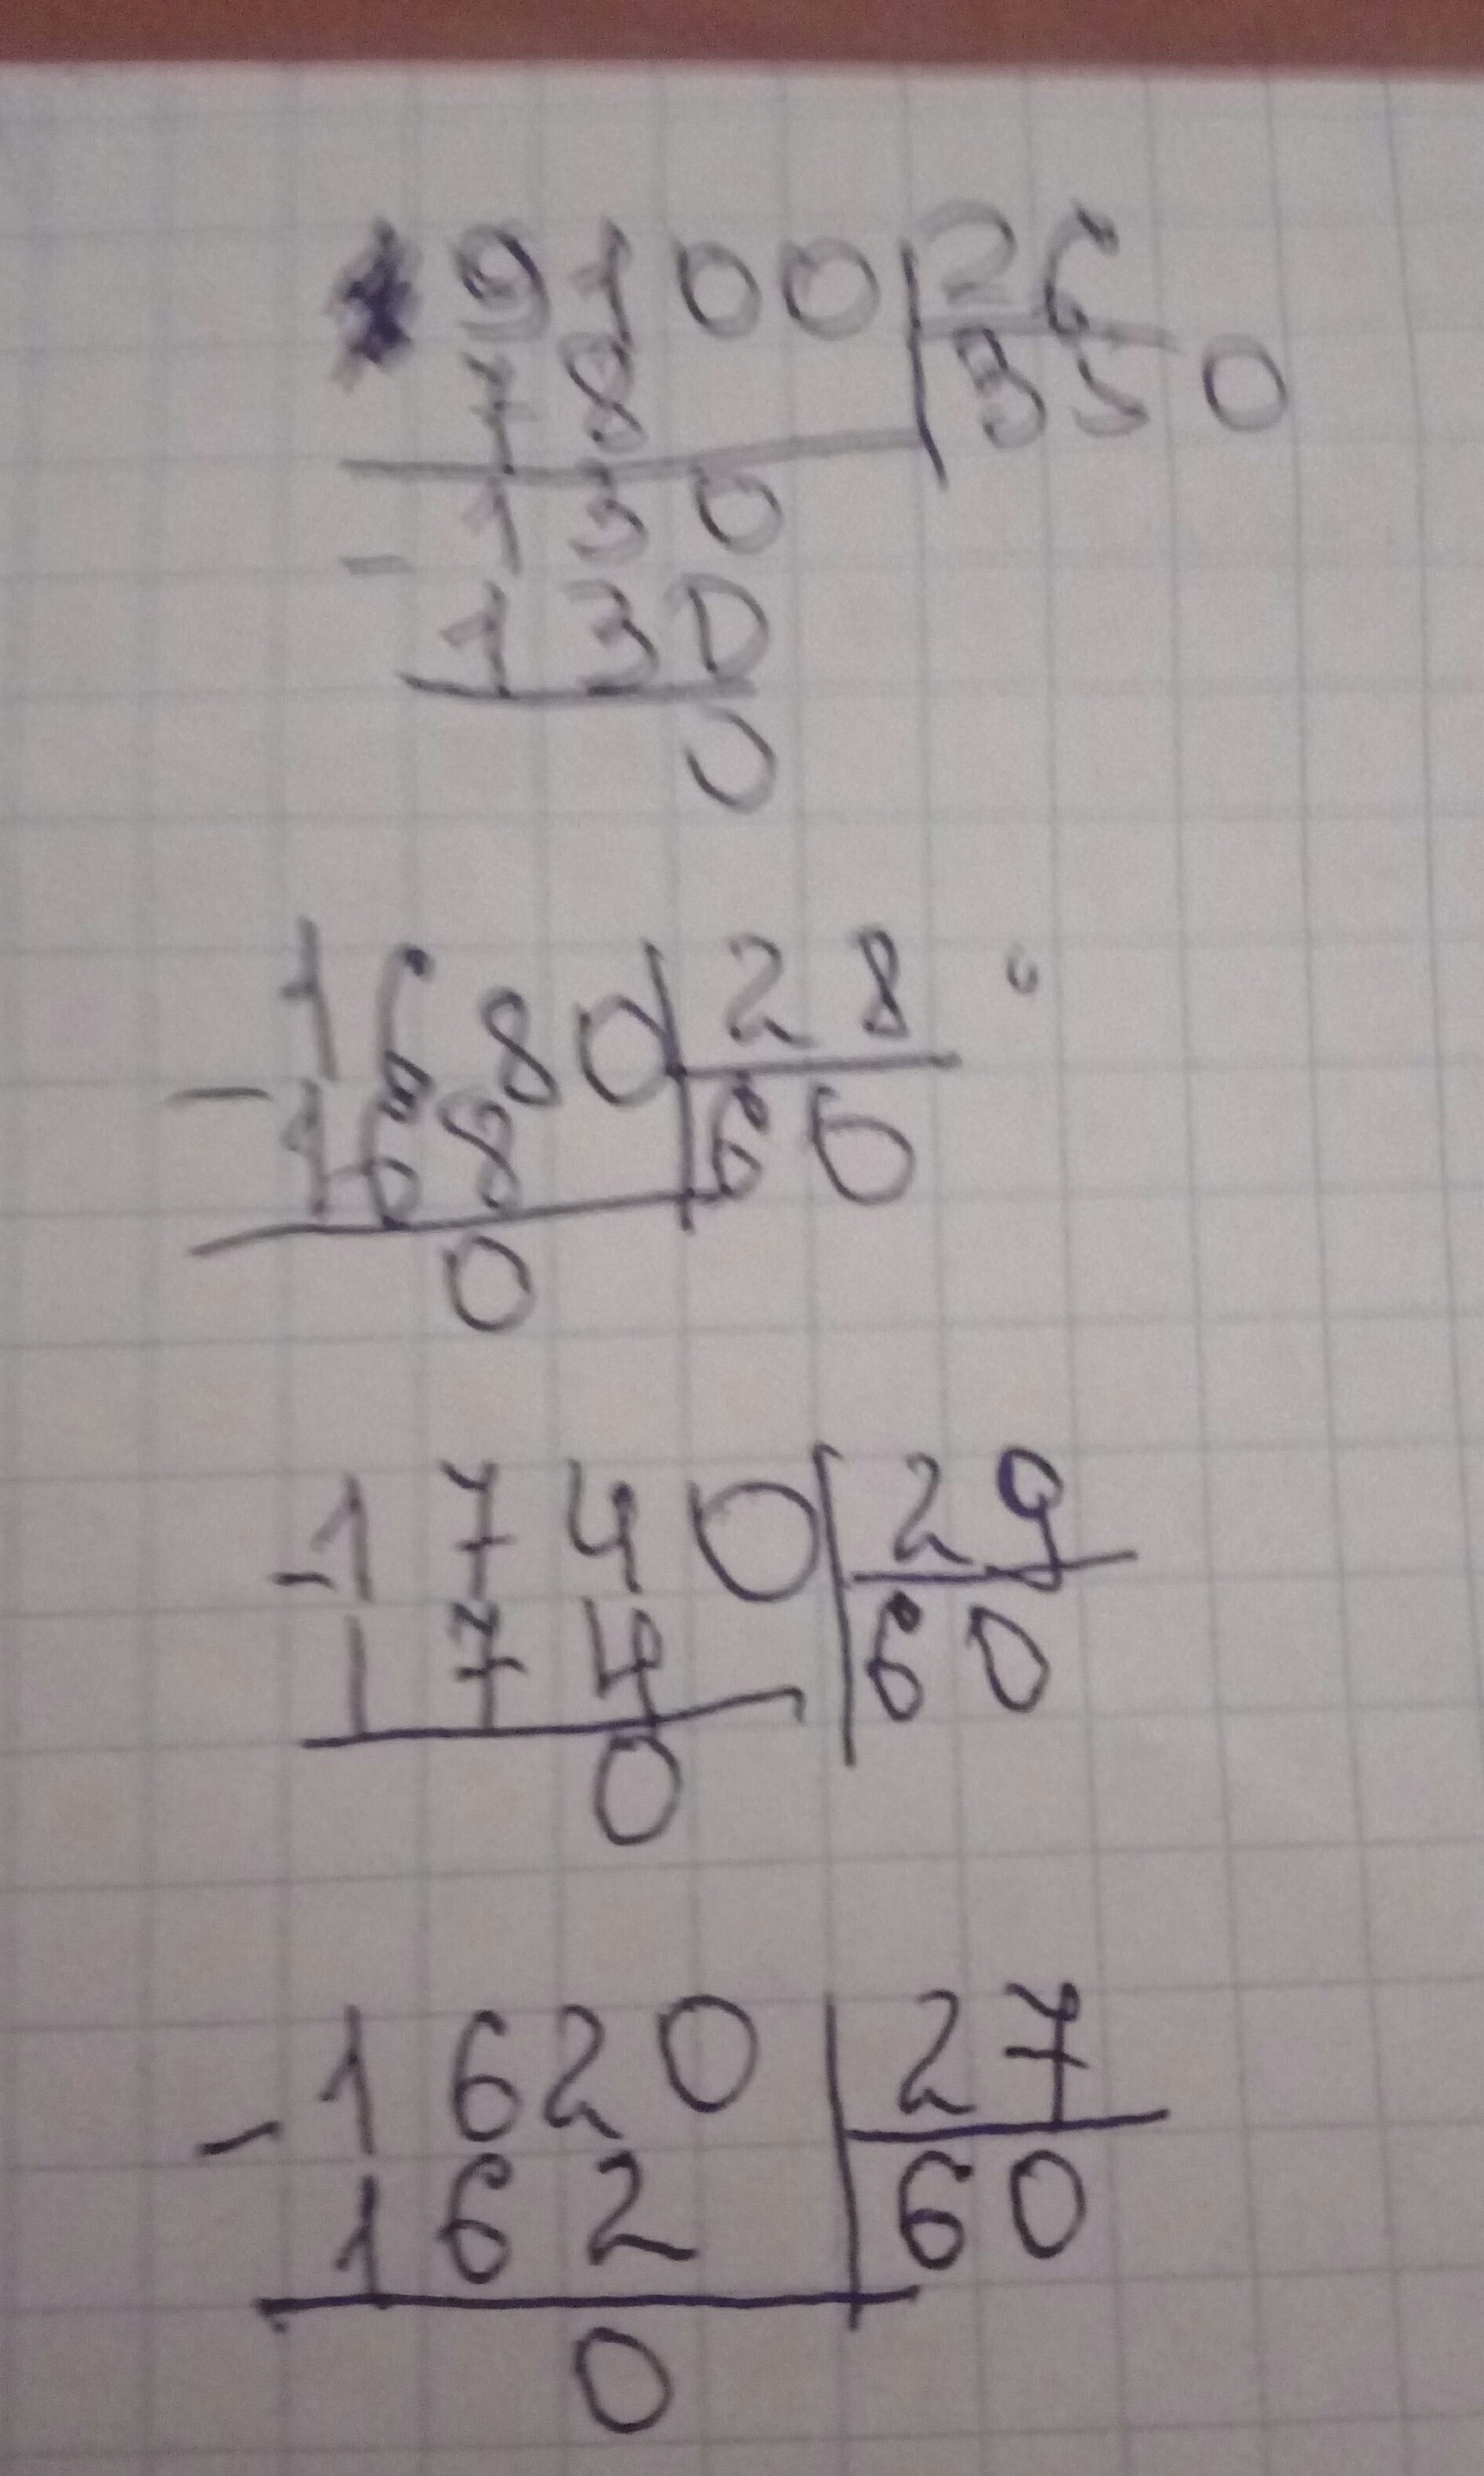 9100 26
78 350
- 130
130
0
1680 28
- 168 60
0
- 1740 29
174 60
0
- 1620 27
162 60
0